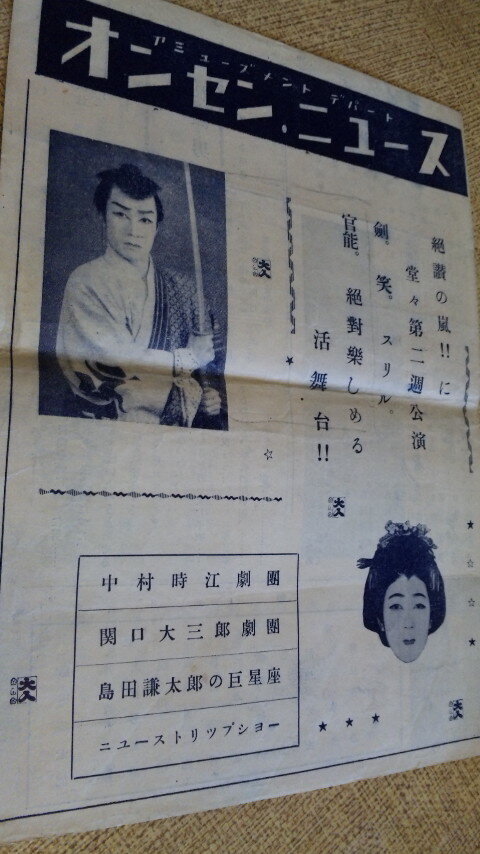 アミューズメント デパート
オンセン・ニュース
絶讃の嵐!! に
堂々第二週公演
劍。笑。スリル。
官能。絶對樂しめる
活舞台!!
中村時江劇團
関口大三郎劇團
島田謙太郎の巨星座
ニューストリツプショー